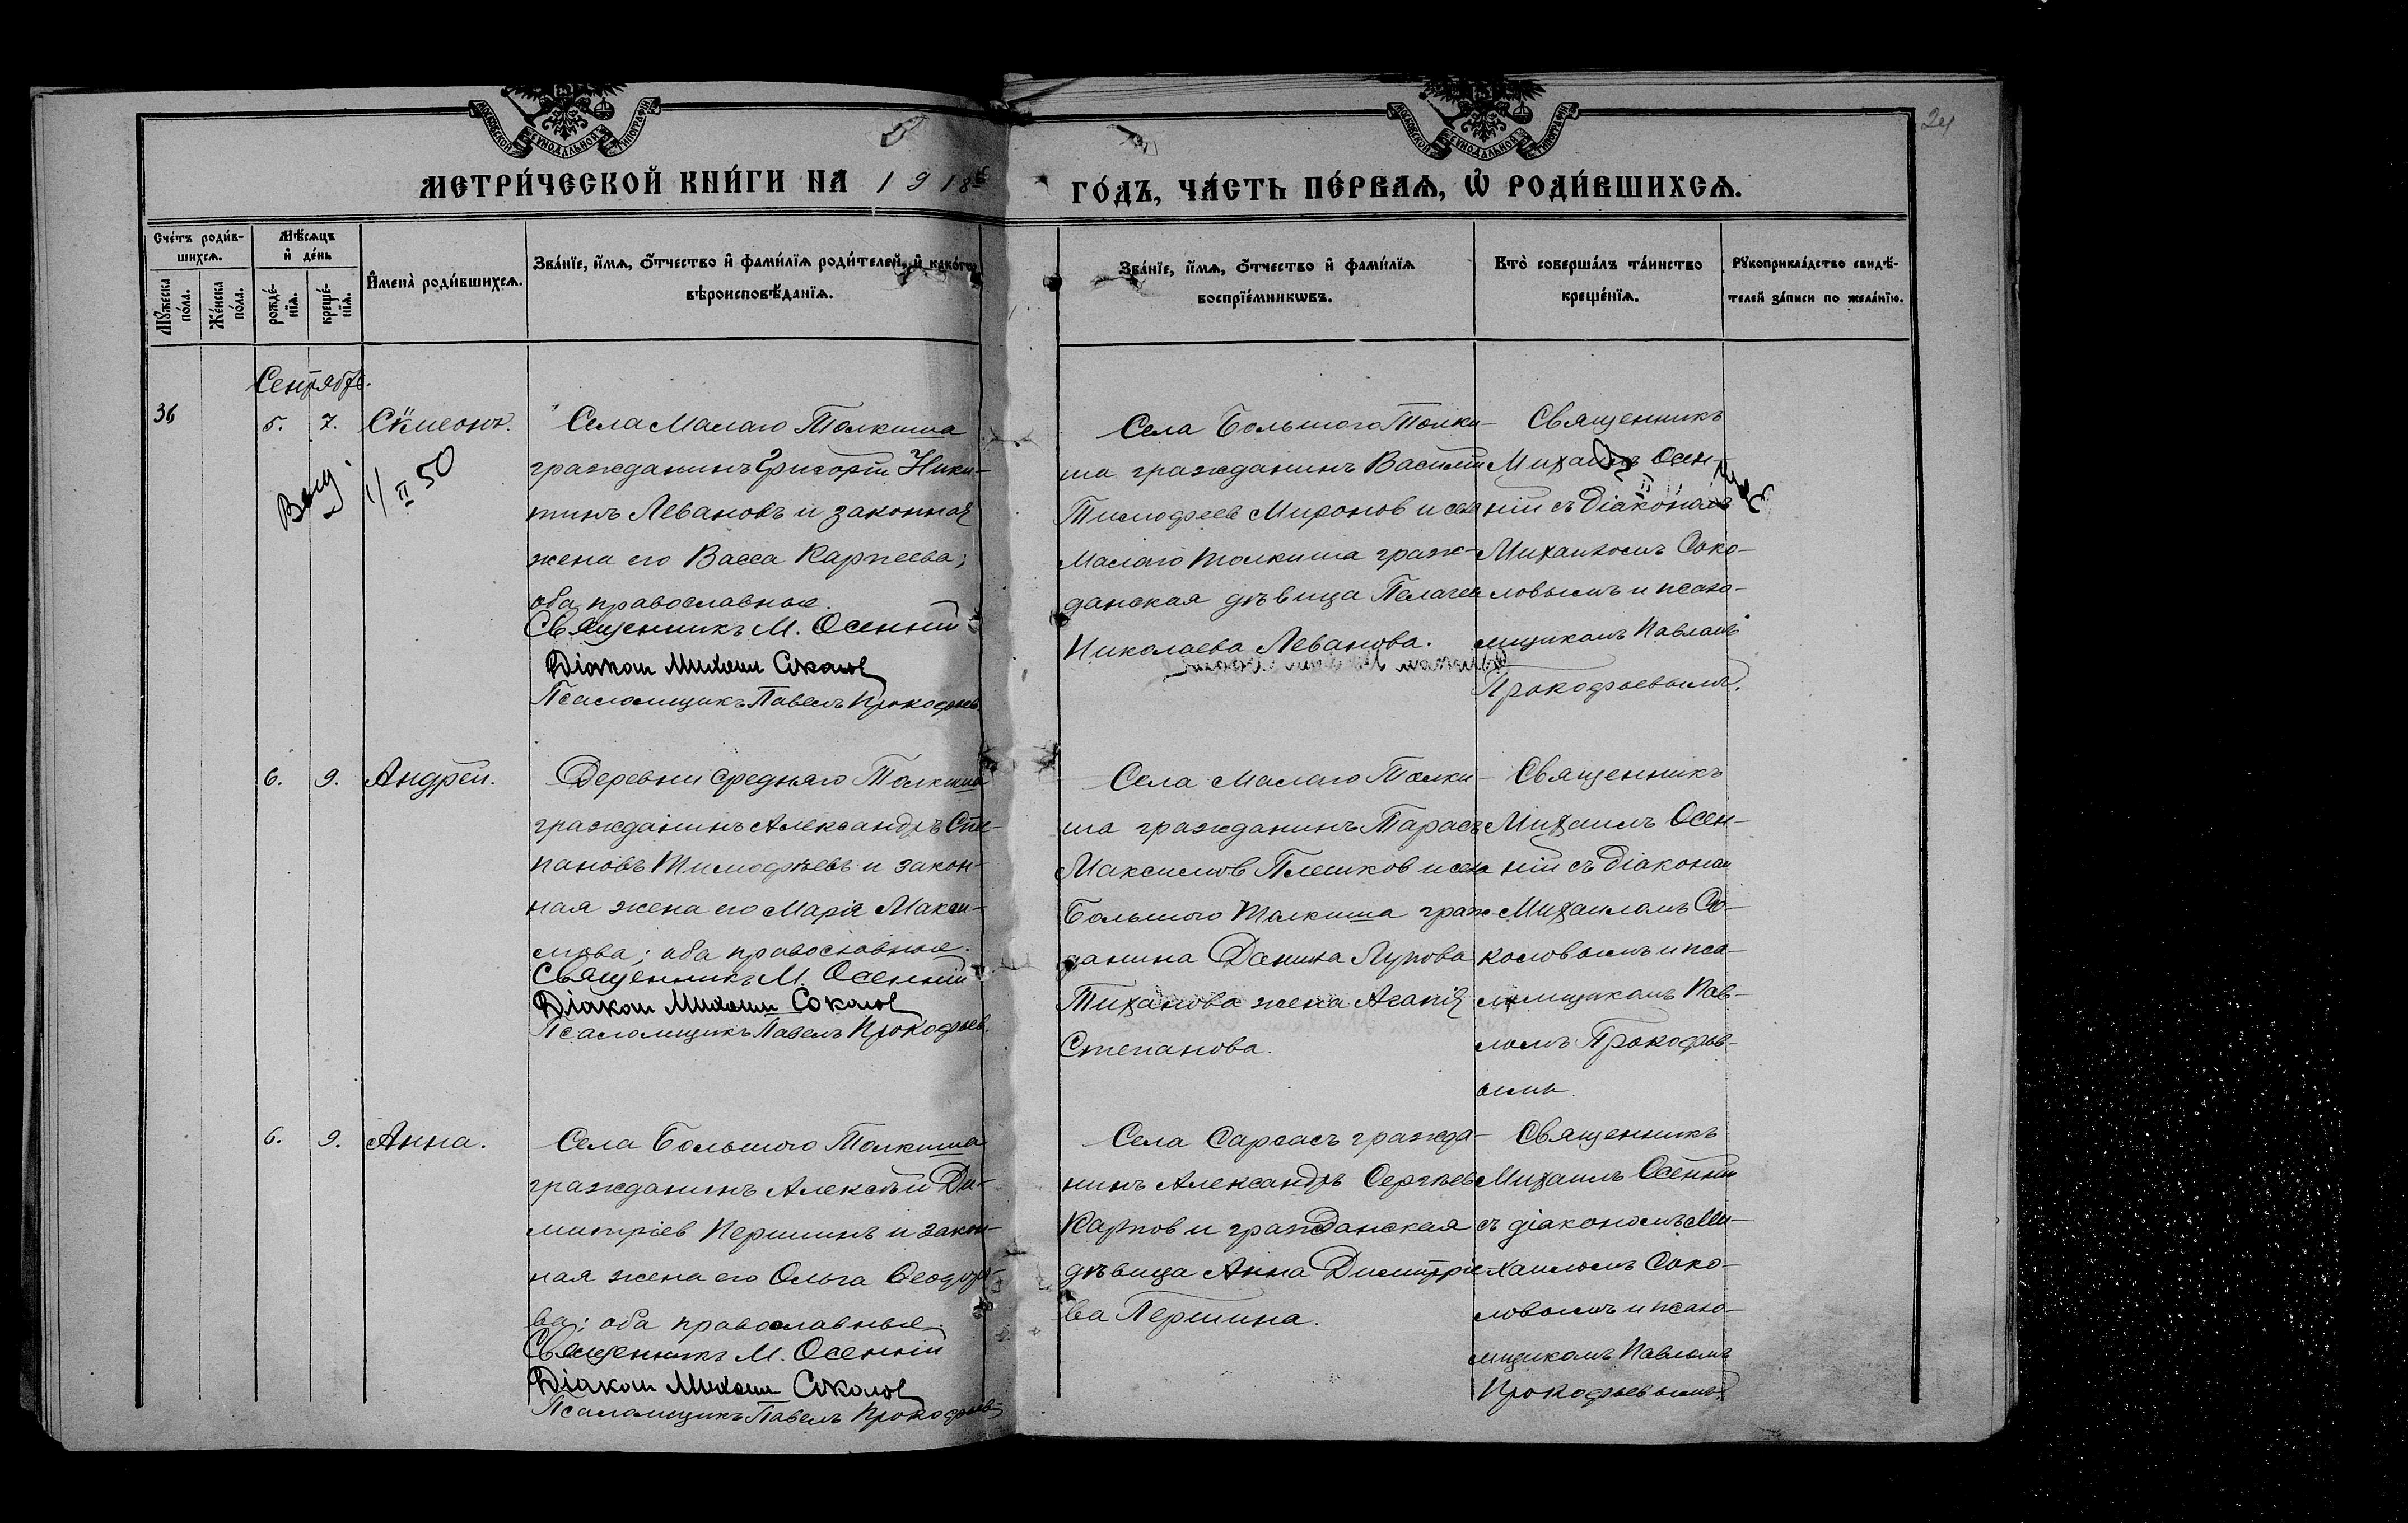 МОСКОВСКОЙ СѴНОДАЛЬНОЙ ТИПОГРАФІИ
МОСКОВСКОЙ СѴНОДАЛЬНОЙ ТИПОГРАФІИ
24
МЕТРИ́ЧЕСКОЙ КНИ́ГИ НА 1918й
ГО́ДЪ, ЧА́СТЬ ПЕ́РВАѦ, Ѡ҆ РОДИ́ВШИХСѦ.
Сче́тъ роди́в-
шихсѧ.
Мꙋ́жеска по́ла.
Же́нска по́ла.
Мѣ́сѧцъ
и҆ де́нь
рожде́-
нїѧ.
креще́-
нїѧ.
И҆мена̀ роди́вшихсѧ.
Зва́нїе, и҆́мѧ, ѻ҆́тчество и҆ фами́лїѧ роди́телей, и҆ како́гѡ
вѣроисповѣ́данїѧ.
Зва́нїе, и҆́мѧ, ѻ҆́тчество и҆ фами́лїѧ
воспрїе́мникѡвъ.
Кто̀ соверша́лъ та́инство
креще́нїѧ.
Рꙋкоприкла́дство свидѣ́-
телей за́писи по жела́нїю.
Сентябрь.
36
5.
7.
Сѷмеонъ.
1/II 50
Села Малаго Толкиша
гражданинъ Григорій Ники-
тинъ Левановъ и законная
жена его Васса Карпеева;
оба православные.
Священникъ М. Осенній
Діакон Михаил Соколов
Псаломщикъ Павелъ Прокофьев.
Села Большого Толки-
ша гражданинъ Василій
Тимофеев Миронов и села
Малаго Толкиша граж-
данская дѣвица Пелагея
Николаева Леванова.
Священникъ
Михаилъ Осен-
ній съ діаконом
Михаиломъ Соко-
ловымъ и псало-
мщикомъ Павломъ
Прокофьевымъ.
6.
9.
Андрей.
Деревни Средняго Толкиша
гражданинъ Александръ Сте-
пановъ Тимофѣевъ и закон-
ная жена его Марія Макси-
мова; оба православные.
Священникъ М. Осенній
Діакон Михаил Соколов
Псаломщикъ Павелъ Прокофьев.
Села Малаго Толки-
ша гражданинъ Тарасъ
Максимов Плешков и села
Большого Толкиша граж-
данина Данила Лупова
Тиханова жена Агапія
Степанова.
Священникъ
Михаилъ Осен-
ній съ діаконом
Михаиломъ Со-
коловымъ и пса-
ломщикомъ Пав-
ломъ Прокофьев-
ымъ.
6.
9.
Анна.
Села Большого Толкиша
гражданинъ Алексѣй Ди-
митріев Першинъ и закон-
ная жена его Ольга Ѳеодоро-
ва; оба православные.
Священникъ М. Осенній
Діакон Михаил Соколов
Псаломщикъ Павелъ Прокофьев.
Села Сарсасъ гражда-
нинъ Александръ Сергѣев
Карпов и гражданская
дѣвица Анна Димитріе-
ва Першина.
Священникъ
Михаилъ Осенній
съ діакономъ Ми-
хаиломъ Соко-
ловымъ и псало-
мщикомъ Павломъ
Прокофьевымъ.